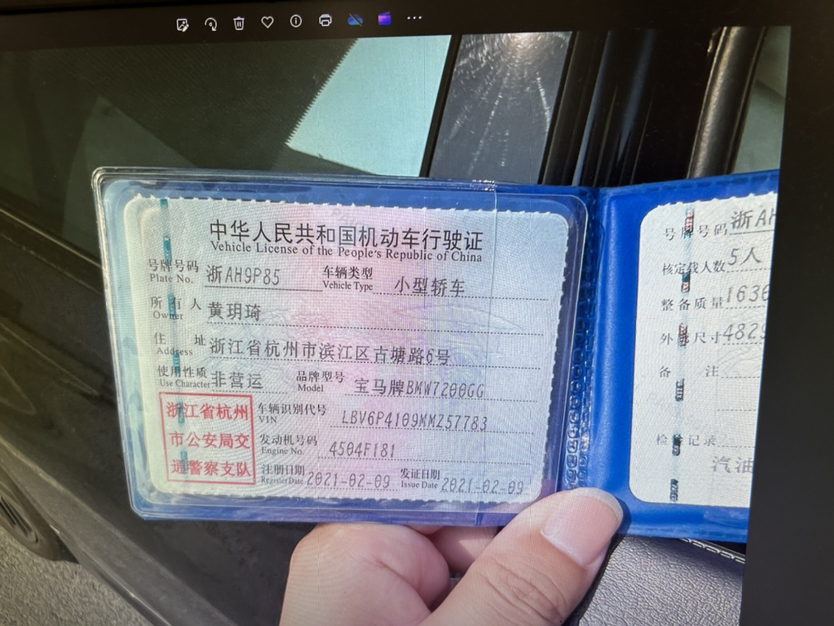 中华人民共和国机动车行驶证
Vehicle License of the People's Republic of China
号牌号码 浙AH9P85 车辆类型 小型轿车
Plate No. Vehicle Type
所有人 黄玥琦
Owner
住址 浙江省杭州市滨江区古塘路6号
Address
使用性质 非营运 品牌型号 宝马牌BMW7200GG
Use Character Model
浙江省杭州
市公安局交
通警察支队
车辆识别代号 LBV6P4109MMZ57783
VIN
发动机号码 4504F181
Engine No.
注册日期 2021-02-09 发证日期 2021-02-09
Register Date Issue Date
号牌号码 浙AH
核定载人数 5人
整备质量 1636
外 尺寸 4829
备注
检 记录
汽油